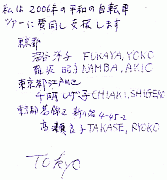 私は2006年の平和の自転車
ツアーに賛同し支援します
東京都
深谷 洋子 FUKAYA, YOKO
難波 昭子 NAMBA, AKIO
東京都江戸川区
千明 しげ子 CHIAKI, SHIGEKO
東京都 4-45-2
高瀬 TAKASE, RYOKO
Tokyo